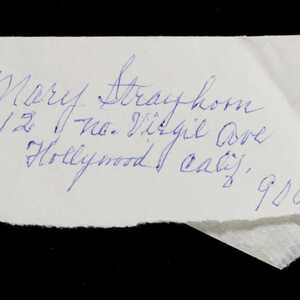 Mary Strayhorn
12 no. Virgil Ave
Hollywood, Calif.
900